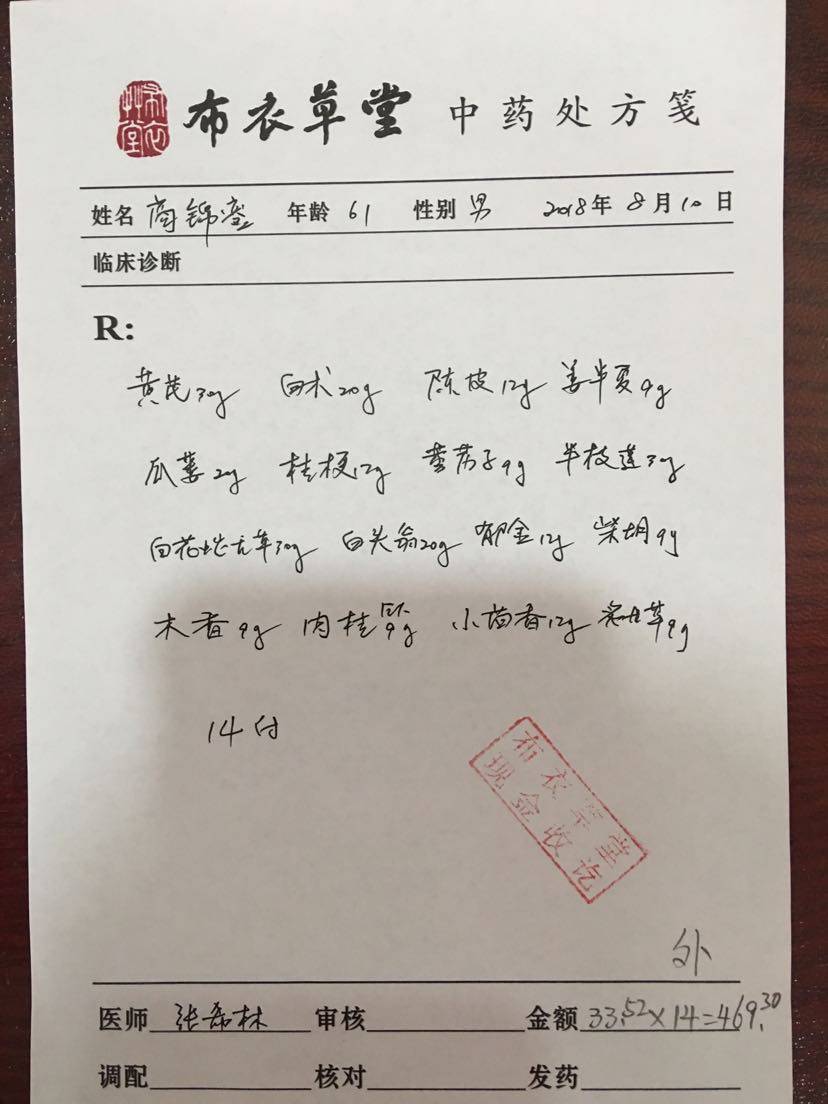 布衣草堂 布衣草堂 中药处方笺
姓名 商锦 年龄 61 性别 男 2018年 8月10日
临床诊断
R:
黄芪30g 白术20g 陈皮12g 姜半夏9g
瓜蒌20g 桔梗12g 葶苈子9g 半枝莲30g
白花蛇舌草30g 白头翁20g 郁金12g 柴胡9g
木香9g 肉桂9g 小茴香12g 草9g
14付
布衣草堂
现金收讫
外
医师 张希林 审核 金额 33.52×14=469.30
调配 核对 发药